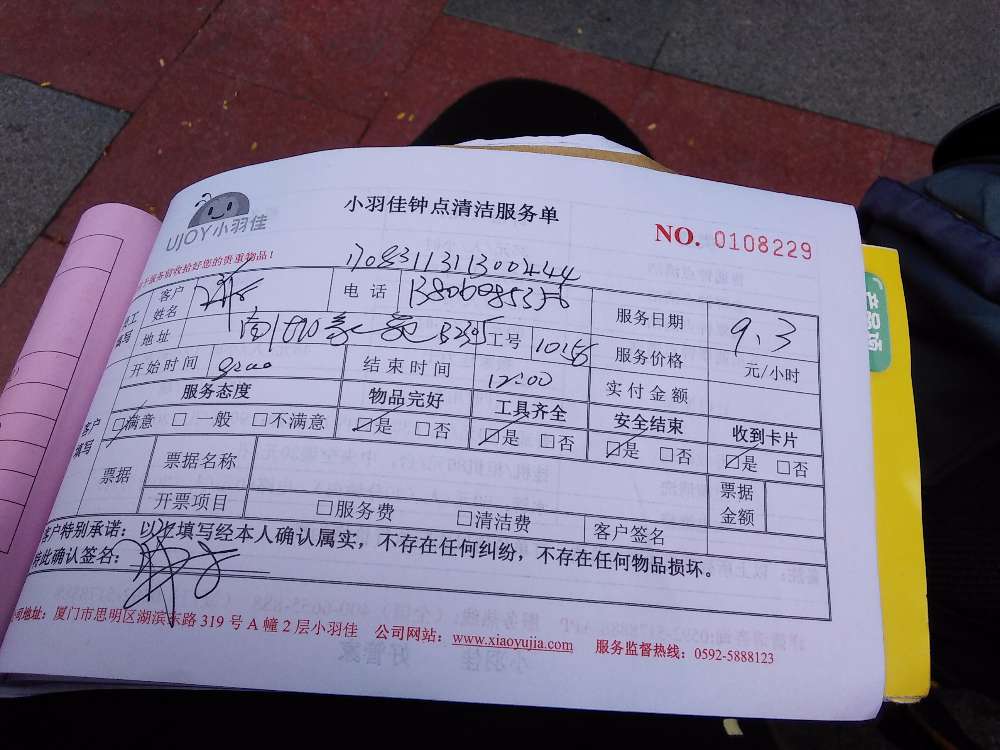 UJOY小羽佳
小羽佳钟点清洁服务单
NO. 0108229
服务前收拾好您的贵重物品！
1708311311300444
客户姓名
电话
服务日期 9.3
填写
地址
工号 10156
服务价格 元/小时
开始时间
结束时间 12:00
实付金额
服务态度 物品完好 工具齐全 安全结束 收到卡片
客户填写
□满意 □一般 □不满意 □是 □否 □是 □否 □是 □否 □是 □否
票据
票据名称
票据金额
开票项目 □服务费 □清洁费 客户签名
客户特别承诺：以上填写经本人确认属实，不存在任何纠纷，不存在任何物品损坏。
特此确认签名：
公司地址：厦门市思明区湖滨东路 319 号 A 幢 2 层小羽佳 公司网站：www.xiaoyujia.com 服务监督热线：0592-5888123